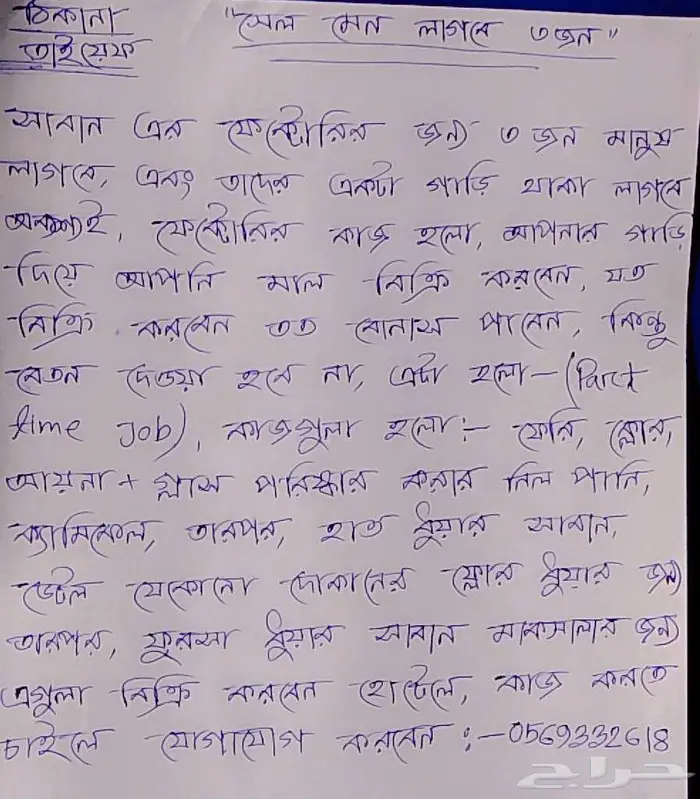 ঠিকানা
তাইয়েফ
"সেল মেন লাগবে ৩জন"
সাবান এর ফেক্টোরির জন্য ৩ জন মানুষ
লাগবে, এবং তাদের একটা গাড়ি থাকা লাগবে
অবশ্যই, ফেক্টোরির কাজ হলো, আপনার গাড়ি
দিয়ে আপনি মাল বিক্রি করবেন, যত
বিক্রি করবেন তত বোনাস পাবেন, কিন্তু
বেতন দেওয়া হবে না, এটা হলো - (Part
time Job), কাজগুলা হলো :- ফেরি, ক্লোর,
আয়না + গ্লাস পরিস্কার করার নিল পানি,
ক্যামিকেল, তারপর, হাত ধুঁয়ার সাবান,
ডেটল যেকোনো দোকানের ফ্লোর ধুঁয়ার জন্য
তারপর, ফুরসা ধুঁয়ার সাবান মাকসালার জন্য
এগুলা বিক্রি করবেন হোটেলে, কাজ করতে
চাইলে যোগাযোগ করবেন :- 0569332618
حراج